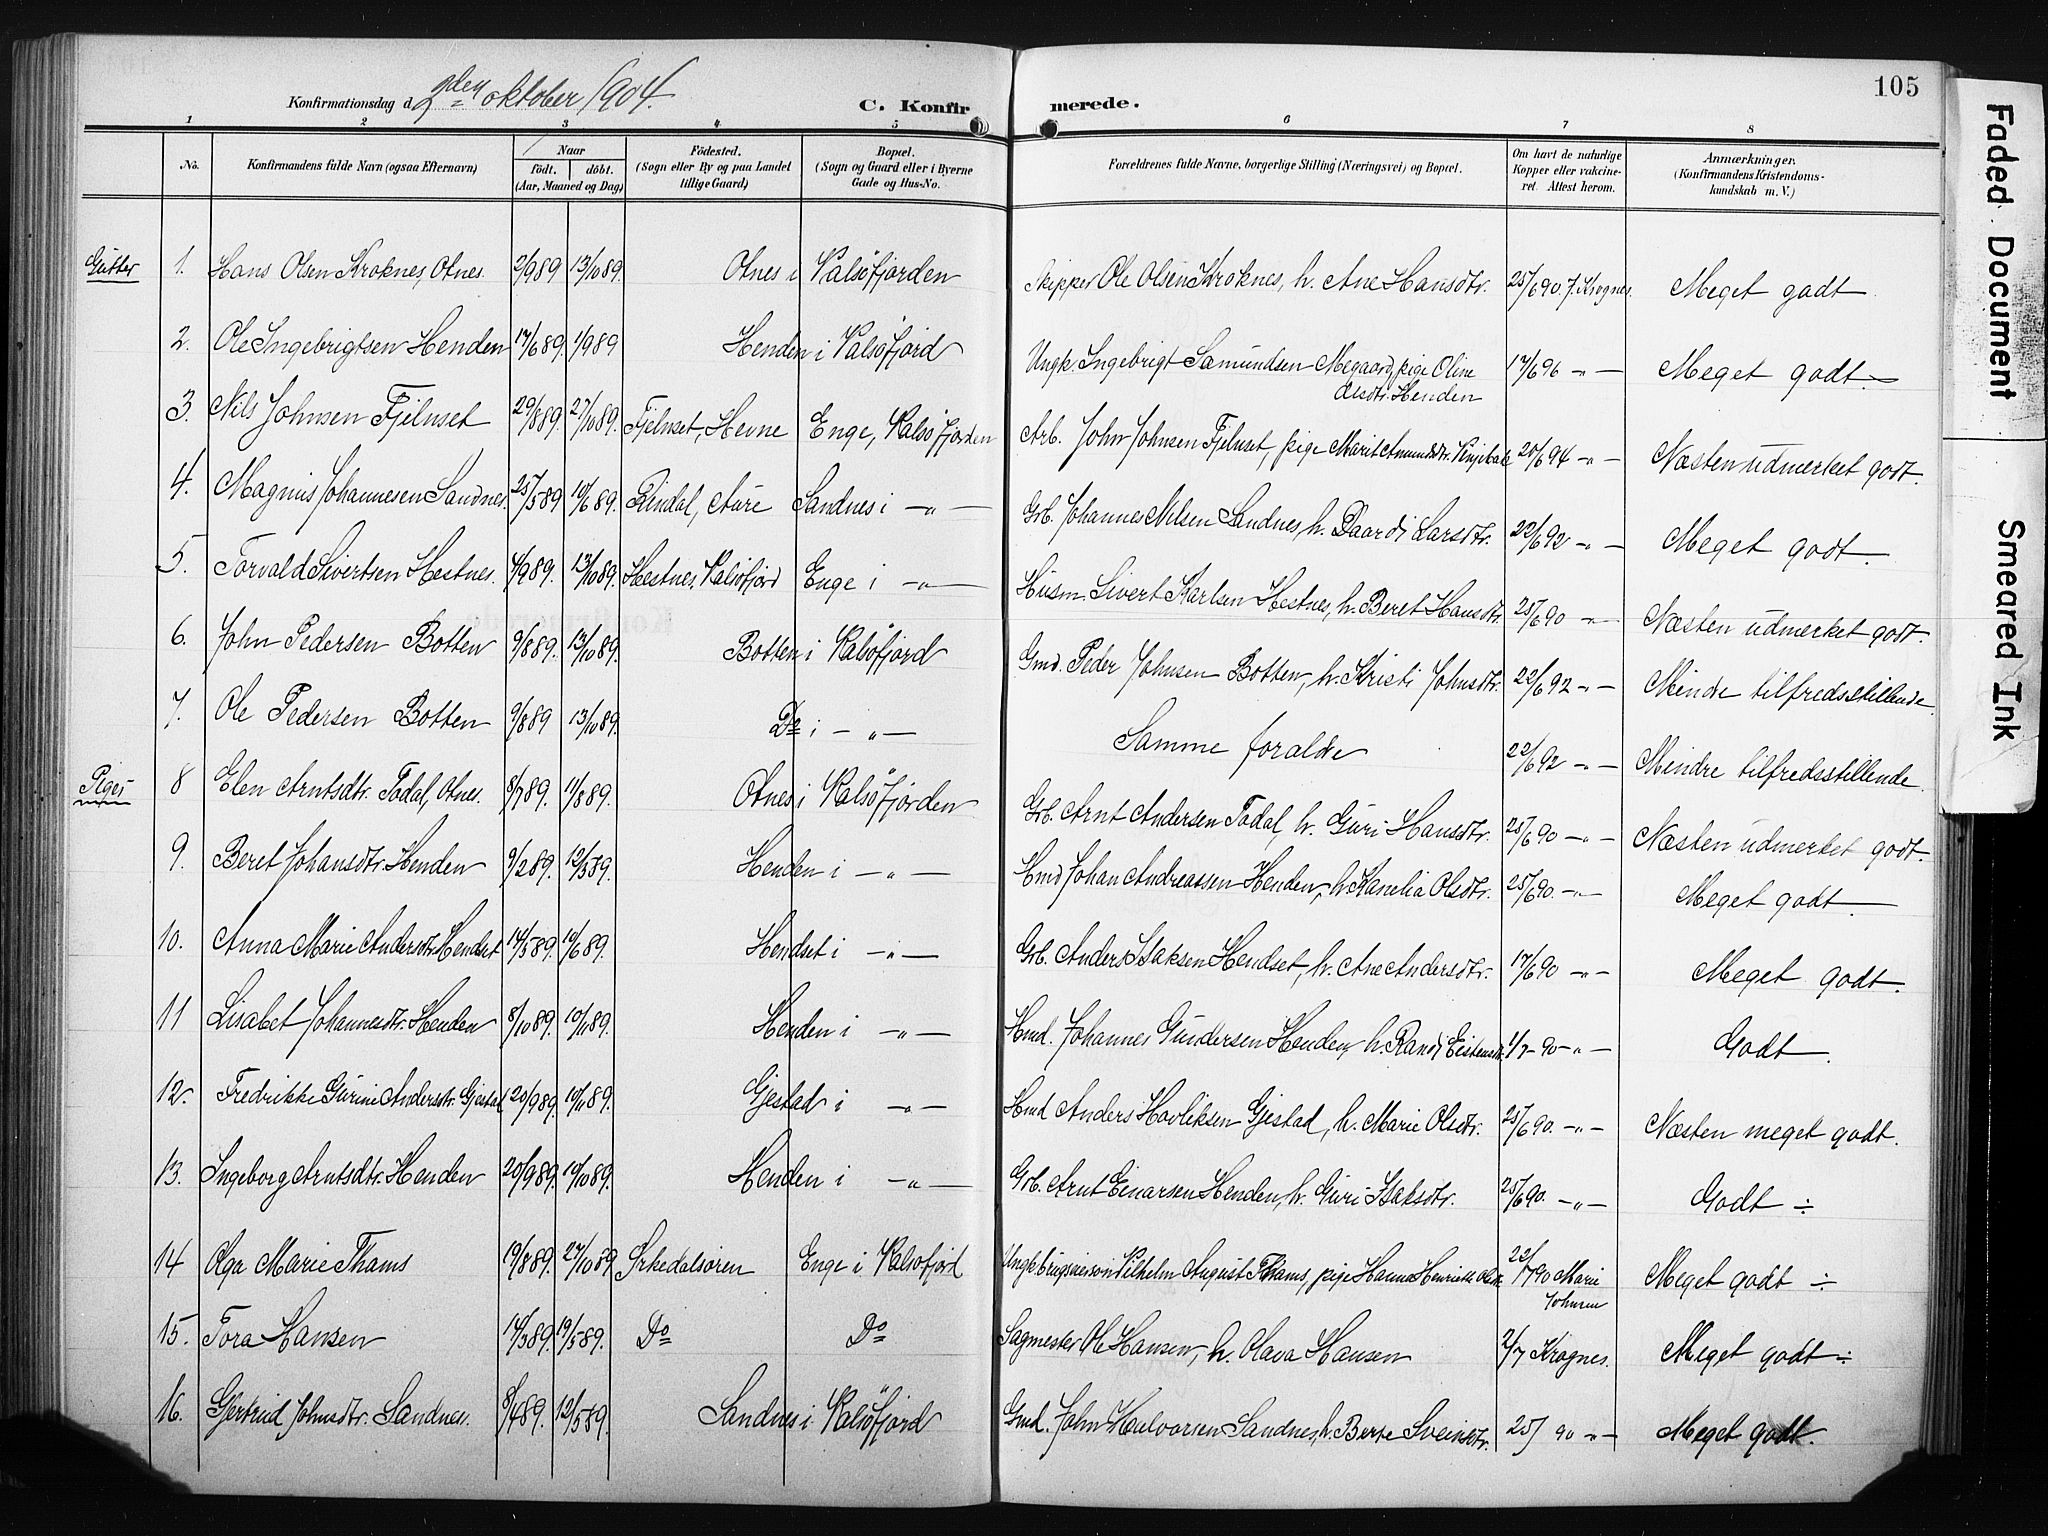 105
Konfirmationsdag d. 2den oktober 1904.
C. Konfirmerede.
1 2 3 4 5 6 7 8
No. Konfirmandens fulde Navn (ogsaa Efternavn) Naar født. døbt. (Aar, Maaned og Dag) Fødested. (Sogn eller By og paa Landet tillige Gaard) Bopæl. (Sogn og Gaard eller i Byerne Gade og Hus-No. Forældrenes fulde Navne, borgerlige Stilling (Næringsvei) og Bopæl. Om havt de naturlige Kopper eller vakcineret. Attest herom. Anmærkninger. (Konfirmandens Kristendomskundskab m. V.)
Gutter 1. Hans Olsen Kroknes, Otnes. 2/9 89 13/10 89. Otnes i Valsöfjorden Skipper Ole Olsen Kroknes, h. Ane Hansdtr. 25/6 90 J. Krognes. Meget godt
2. Ole Ingebrigtsen Henden 17/6 89. 1/9 89 Henden i Valsöfjord Ungk. Ingebrigt Samundsen Megaard, pige Oline Olsdtr. Henden 17/6 96 -„- Meget godt.
3. Nils Johnsen Fjelnset 29/8 89. 27/10 89. Fjelnset, Hevne Enge, Valsöfjorden Arb. John Johnsen Fjelnset, pige Marit Amundsdtr. 20/6 94 -„- Næsten udmerket godt.
4. Magnus Johannesen Sandnes. 25/5 89 10/6 89. Rindal, Aure Sandnes i -„- Grb. Johannes Nilsen Sandnes, h. Baardi Larsdtr. 22/6 92 -„- Meget godt.
5. Torvald Sivertsen Hestnes. 4/9 89. 13/10 89. Hestnes. Valsöfjord Enge i -„- Husm. Sivert Karlsen Hestnes, h. Beret Hansdtr. 25/6 90 -„- Næsten udmerket godt.
6. John Pedersen Botten 9/8 89. 13/10 89. Botten i Valsöfjord Gmd. Peder Johnsen Botten, h. Kristi Johnsdtr. 22/6 92 -„- Mindre tilfredsstillende.
7. Ole Pedersen Botten 9/8 89 13/10 89. Do i -„- Samme foraldre 22/6 92 -„- Mindre tilfredsstillende.
Piger 8 Elen Arntsdtr. Todal, Otnes. 8/7 89. 11/8 89. Otnes i Valsöfjorden Grb. Arnt Andersen Todal, h. Guri Hansdtr. 25/6 90 -„- Næsten udmerket godt.
9. Beret Johansdtr. Henden 9/2 89. 12/3 89. Henden i -„- Hmd Johan Andreassen Henden, h. Kanelia Olsdtr. 25/6 90. -„- Meget godt
10. Anna Marie Andersdtr. Hendset 14/5 89. 10/6 89. Hendset i -„- Grb. Anders Isaksen Hendset, h. Ane Andersdtr. 17/6 90 -„- Meget godt.
11 Lisabet Johannesdtr. Henden 8/10 89. 10/11 89. Henden i -„- Hmd. Johannes Gundersen Henden, h. Randi Eistensdtr. 1/7 - 90 -„- Godt.
12. Fredrikke Gurine Andersdtr. Gjestad 20/9 89. 10/11 89. Gjestad i -„- Hmd Anders Hovliksen Gjestad, h. Marie Olsdtr. 25/6 90. -„- Næsten meget godt.
13. Ingeborg Arntsdtr. Henden 20/9 89. 19/10 89. Henden i -„- Grb. Arnt Einarsen Henden, h. Guri Isaksdtr. 25/6 90. -„- Godt ÷
14 Olga Marie Thams 19/8 89. 27/10 89. Orkedalsören Enge i Valsöfjord Ungk. Vilhelm August Thams, pige Hanna Henriette 22/7 90 Marie Johnsen Meget godt ÷
15. Tora Hansen 14/3 89. 19/5 89. Do Do Sagmester Ole Hansen, h. Olava Hansen 2/7 Krognes. Meget godt ÷
16. Gjertrud Johnsdtr. Sandnes. 8/4 89. 12/5 89. Sandnes i Valsöfjord Gmd. John Halvorsen Sandnes, h. Berte Sveinsdtr. 25/ 90 -„- Meget godt.
Faded Document
Smeared Ink